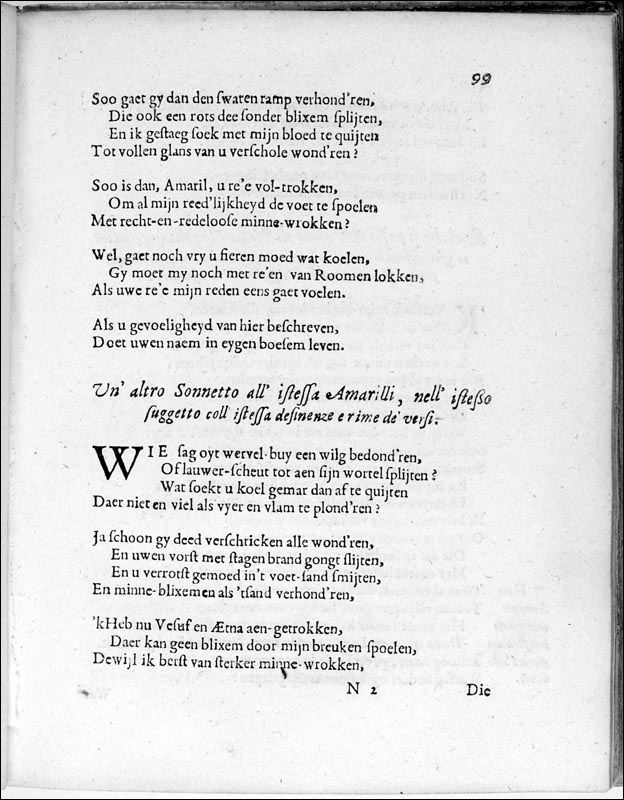 99
Soo gaet gy dan den swaren ramp verhond'ren,
Die ook een rots dee sonder blixem splijten,
En ik gestaeg soek met mijn bloed te quijten
Tot vollen glans van u verschole wond'ren?
Soo is dan, Amaril, u re'e vol-trokken,
Om al mijn reed'lijkheyd de voet te spoelen
Met recht-en-redeloose minne-wrokken?
Wel, gaet noch vry u fieren moed wat koelen,
Gy moet my noch met re'en van Roomen lokken,
Als uwe re'e mijn reden eens gaet voelen.
Als u gevoeligheyd van hier beschreven,
Doet uwen naem in eygen boesem leven.
Un' altro Sonnetto all' istessa Amarilli, nell' istesso
suggetto coll' istessa desinenze e rime de' versi.
WIE sag oyt wervel-buy een wilg bedond'ren,
Of lauwer-scheut tot aen sijn wortel splijten?
Wat soekt u koel gemar dan af te quijten
Daer niet en viel als vyer en vlam te plond'ren?
Ja schoon gy deed verschricken alle wond'ren,
En uwen vorst met stagen brand gongt slijten,
En u verrotst gemoed in't voet-sand smijten,
En minne-blixemen als 'tsand verhond'ren,
'kHeb nu Vesuf en Ætna aen-getrokken,
Daer kan geen blixem door mijn breuken spoelen,
Dewijl ik berst van sterker minne-wrokken,
N 2 Die